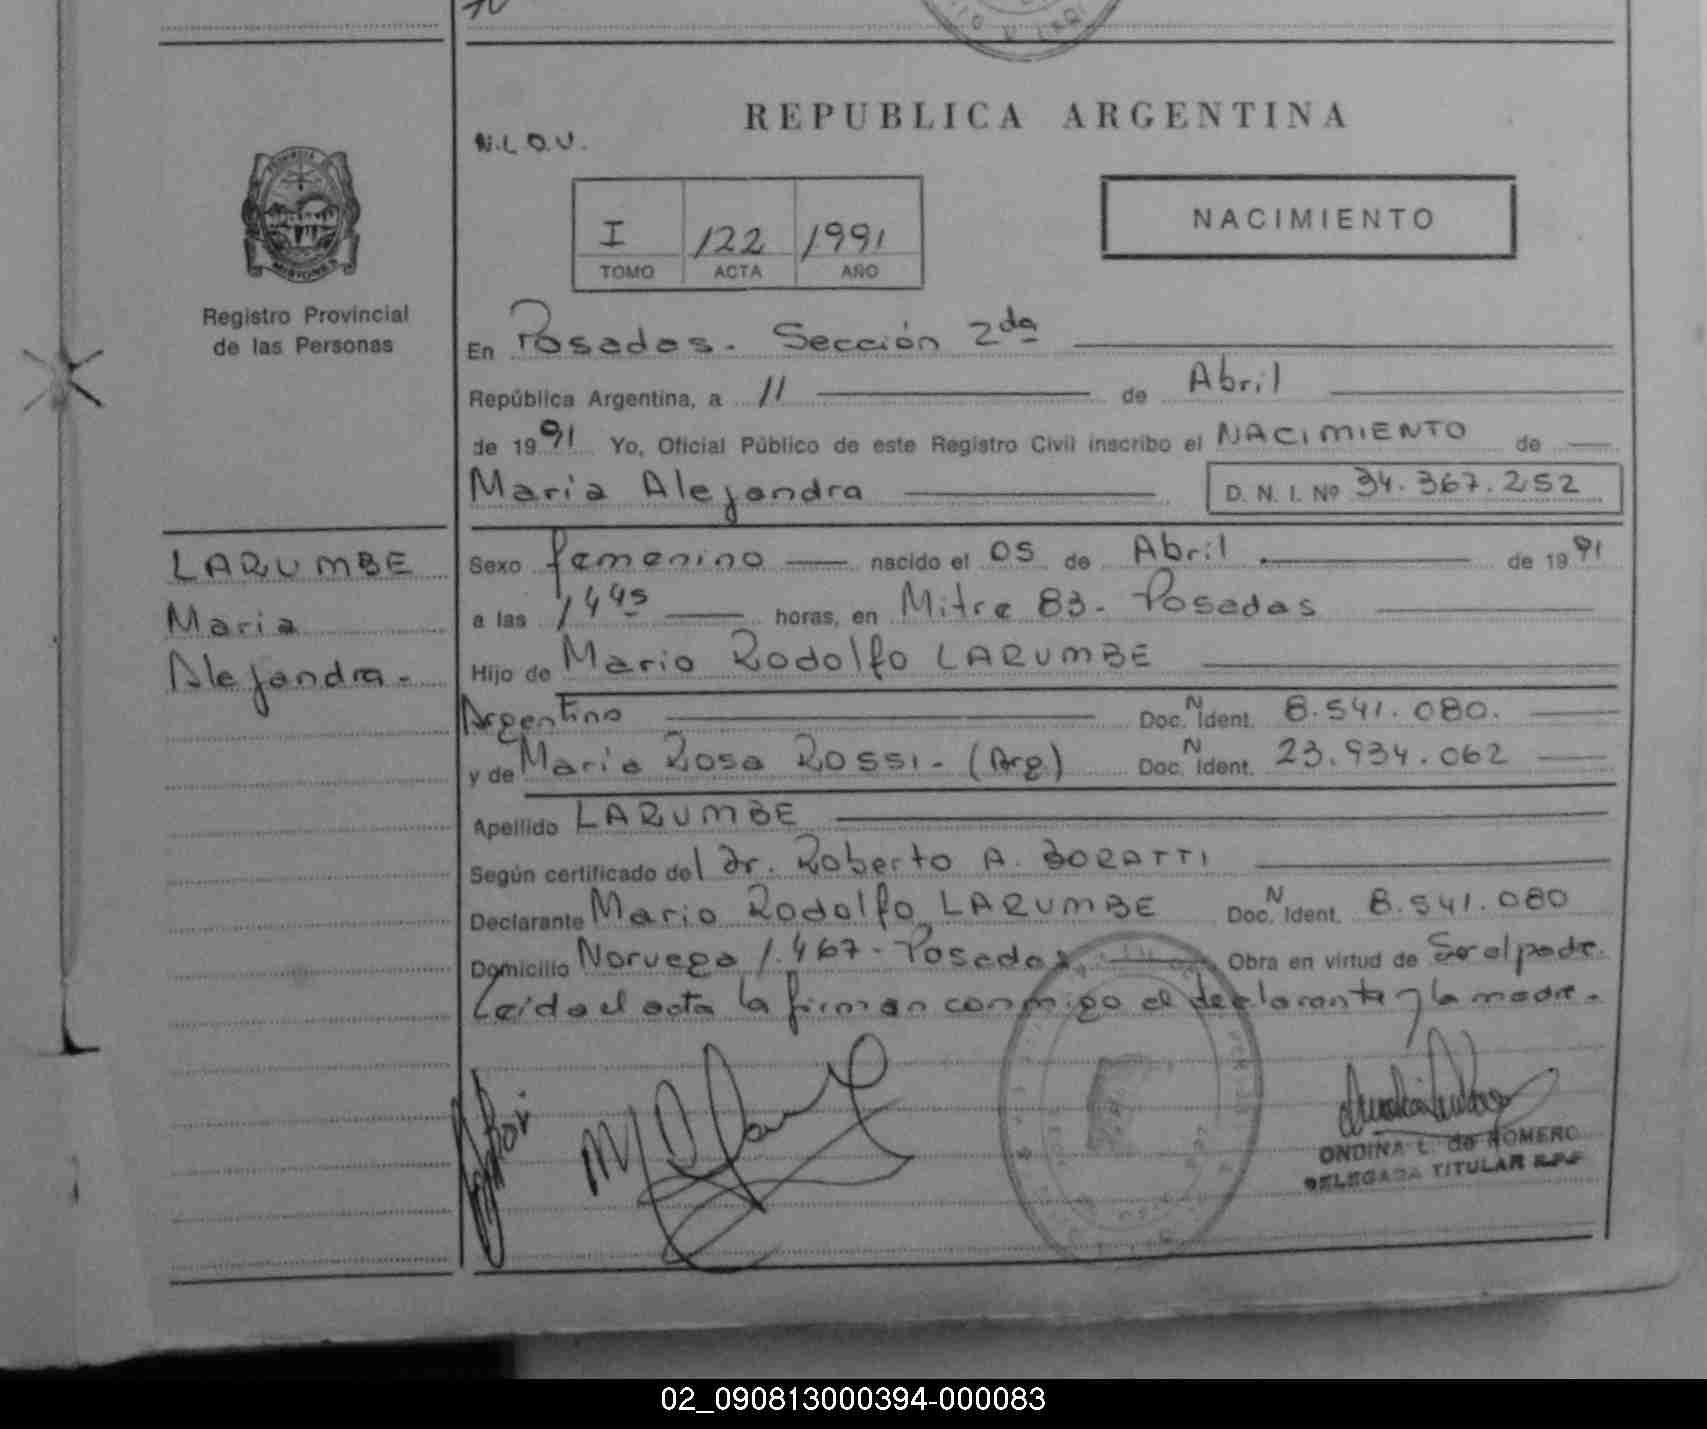 REPUBLICA ARGENTINA
N.L.O.V.
NACIMIENTO
I 122 1991
TOMO ACTA AÑO
Registro Provincial
de las Personas
En Posadas. Sección 2da
República Argentina, a 11 de Abril
de 1991 Yo, Oficial Público de este Registro Civil inscribo el NACIMIENTO de
Maria Alejandra D. N. I. Nº 34.367.252
LARUMBE
Maria
Alejandra.
Sexo femenino nacido el 05 de Abril de 1991
a las 1445 horas, en Mitre 83. Posadas
Hijo de Mario Rodolfo LARUMBE
Argentino Doc. N Ident. 8.541.080.
y de Maria Rosa ROSSI. (Arg.) Doc. N Ident. 23.934.062
Apellido LARUMBE
Según certificado del Dr. Roberto A. BORATTI
Declarante Mario Rodolfo LARUMBE Doc. N Ident. 8.541.080
Domicilio Noruega 1.467. Posadas Obra en virtud de Ser el padre.
Leida el acta la firman conmigo el declarante y la madre.
ONDINA L. de ROMERO
DELEGADA TITULAR R.P.P
02_090813000394-000083